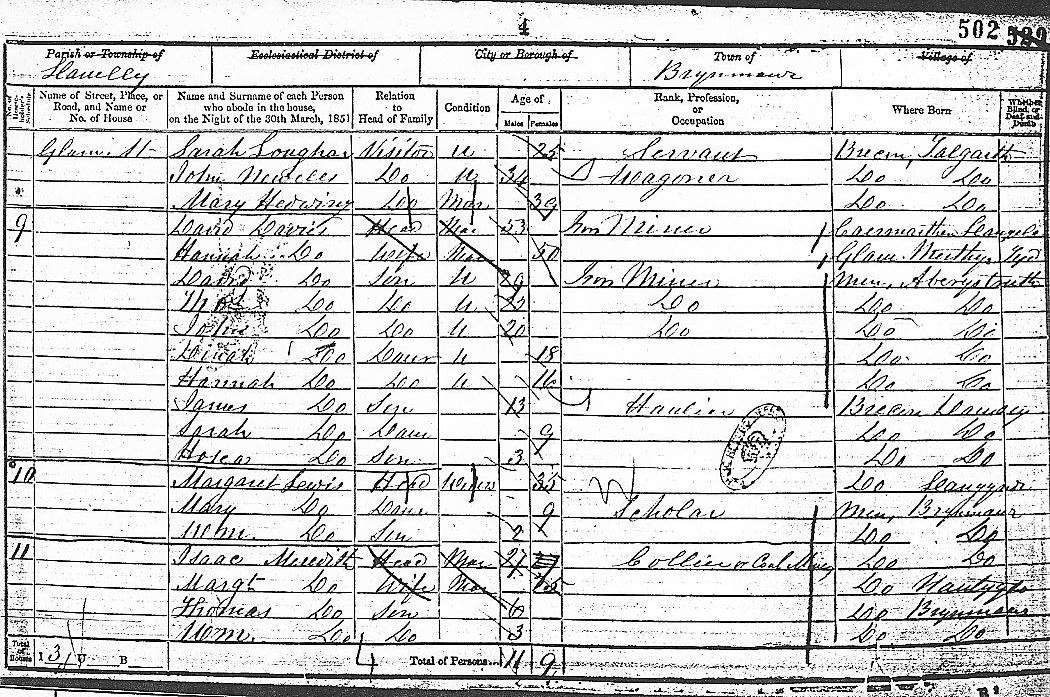 4
502
Parish or Township of Ecclesiastical District of City or Borough of Town of Village of
Llanelly Brynmawr
Name of Street, Place, or Road, and Name or No. of House Name and Surname of each Person who abode in the house, on the Night of the 30th March, 1851 Relation to Head of Family Condition Age of Males Females Rank, Profession, or Occupation Where Born Whether Blind, or Deaf-and-Dumb
Glam. St Sarah Visitor U 25 Servant Brecon, Talgarth
John Do U 34 Wagoner Do Do
Mary Do Mar 39 Do Do
9 David Davis Head Mar 53 Iron Miner Caermarthen
Hannah Do Wife Mar 50 Glam. Merthyr
David Do Son U Iron Miner Mon, Aberystruth
Thos Do Do U 22 Do Do Do
John Do Do U 20 Do Do Do
Dinah Do Daur U 18 Do Do
Hannah Do Do U 16 Do Do
James Do Son 13 Haulier Brecon
Sarah Do Daur 9 Do Do
Hosea Do Son 3 Do Do
10 Margaret Lewis Head 35 Do
Mary Do Daur 9 Scholar Mon, Brynmawr
Wm. Do Son 2 Do Do
11 Isaac Meredith Head Mar 27 Collier or Coal Miner Do Do
Margt Do Wife Mar Do Nantyglo
Thomas Do Son 6 Do Brynmawr
Wm. Do Do 3 Do Do
Total of Houses I 3 U B Total of Persons 11 9